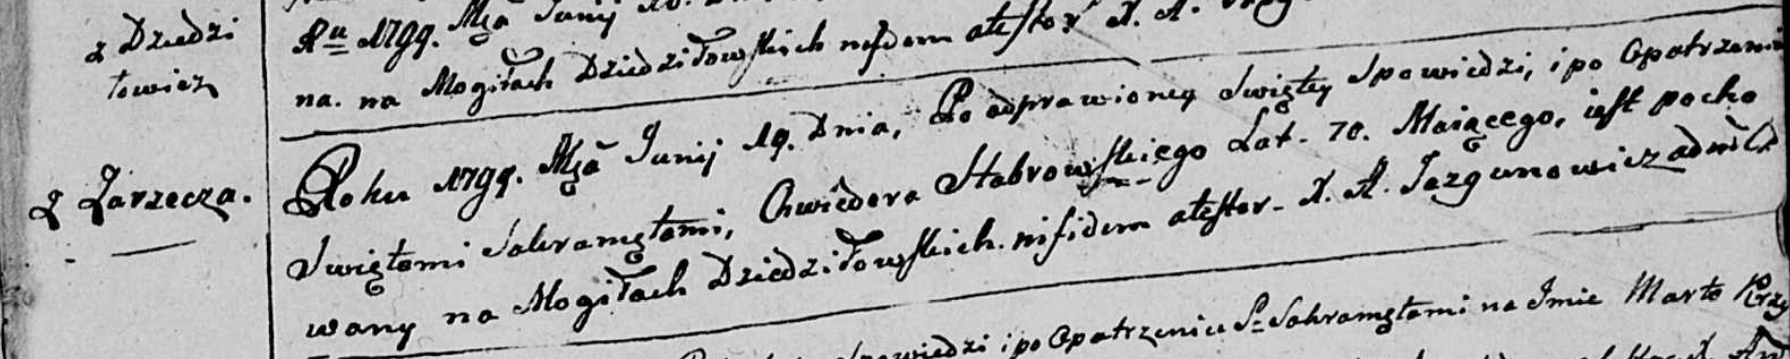 z Dziedzi
łowicz
Ru 1799. Msca Junij
na. na Mogiłach Dziedziłowskich nifidem atestor X. A.
z Zarzecza.
Roku 1799. Msca Junij 19. Dnia, Po odprawioney Swiętey Spowiedzi, i po Opatrzeniu
Swiętemi Sakramętami, Chwiedora Stabrowskiego Lat. 70. Maiącego, iest pocho
wany na Mogiłach Dziedziłowskich. nifidem atestor. X. A. Jazgunowicz
Spowiedzi i po Opatrzeniu S. Sakramętami na Jmie Marta